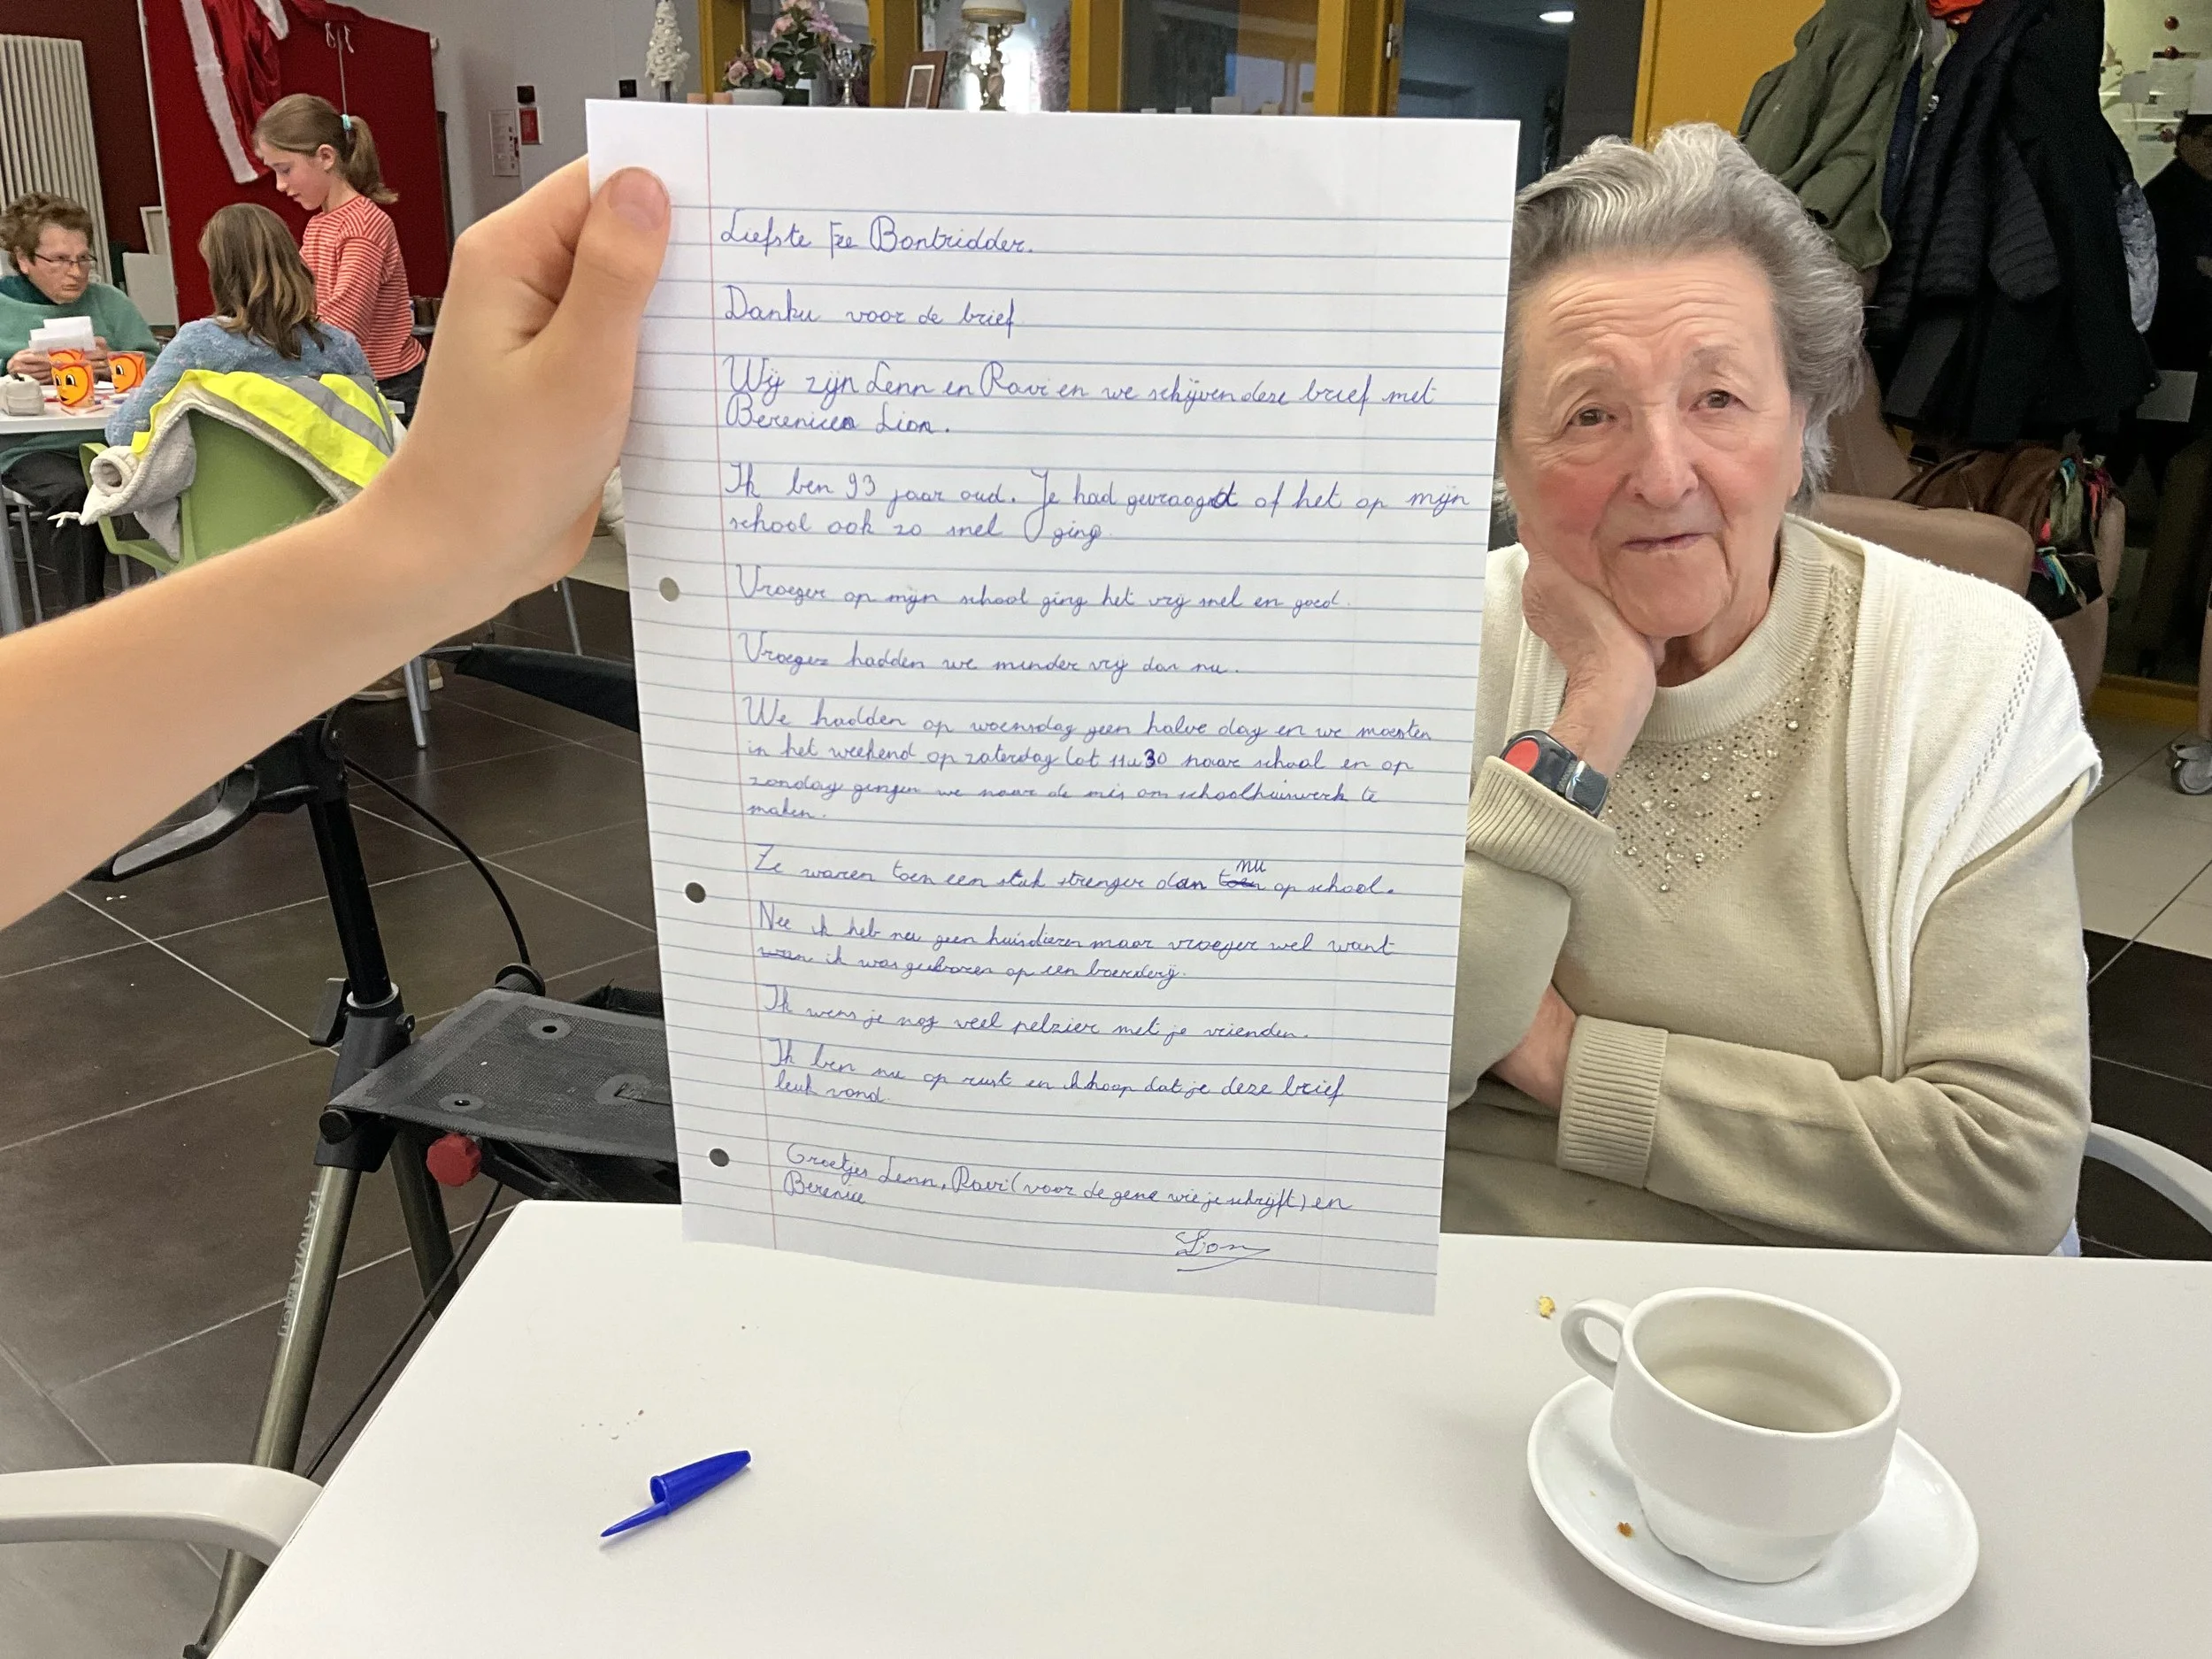 Liefste Fee Bontridder.
Danku voor de brief
Wij zijn Lenn en Ravi en we schijven deze brief met
Berenice Lion.
Ik ben 93 jaar oud. Je had gevraagd of het op mijn
school ook zo snel ging.
Vroeger op mijn school ging het vrij snel en goed.
Vroeger hadden we minder vrij dan nu.
We hadden op woensdag geen halve dag en we moesten
in het weekend op zaterdag tot 11u30 naar school en op
zondag gingen we naar de mis om schoolhuiswerk te
maken.
nu
Ze waren toen een stuk strenger dan toen op school.
Nee ik heb nu geen huisdieren maar vroeger wel want
wan ik was geboren op een boerderij.
Ik wens je nog veel pelzier met je vrienden.
Ik ben nu op rust en ik hoop dat je deze brief
leuk vond.
Groetjes Lenn, Ravi (voor de gene wie je schrijft) en
Berenice
Lion